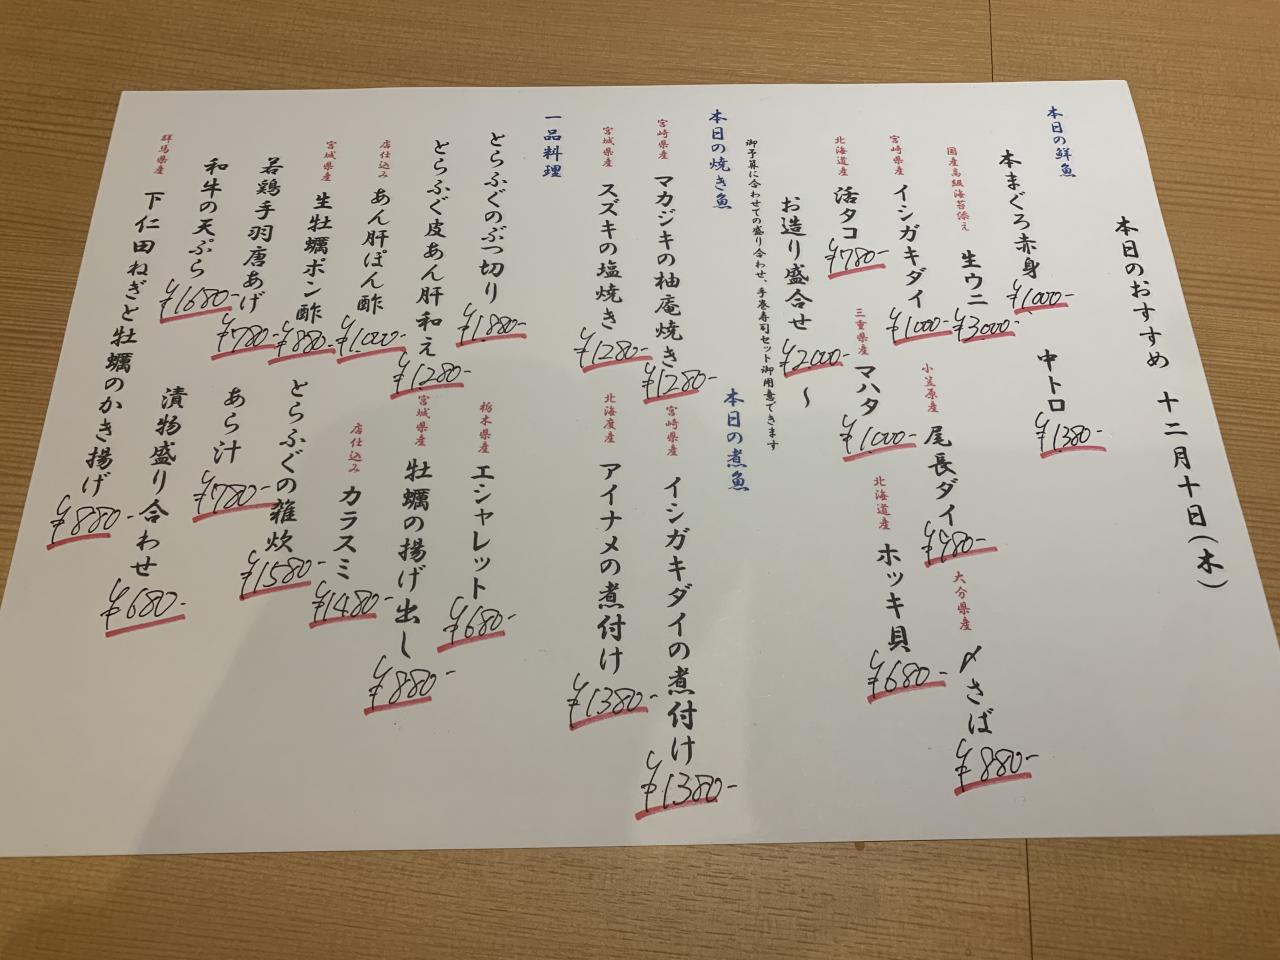 本日のおすすめ 十二月十日(木)
本日の鮮魚
本まぐろ赤身 ¥1000- 中トロ ¥1380-
国産高級海苔添え 生ウニ ¥3000- 小笠原産 尾長ダイ ¥980- 大分県産 〆さば ¥880-
宮崎県産 イシガキダイ ¥1000-
北海道産 活タコ ¥780- 三重県産 マハタ ¥1000- 北海道産 ホッキ貝 ¥680-
お造り盛合せ ¥2000-~
御予算に合わせての盛り合わせ、手巻寿司セット御用意できます
本日の焼き魚 本日の煮魚
宮崎県産 マカジキの柚庵焼き ¥1280- 宮崎県産 イシガキダイの煮付け ¥1380-
宮城県産 スズキの塩焼き ¥1280- 北海度産 アイナメの煮付け ¥1380-
一品料理
とらふぐのぶつ切り ¥1880- 栃木県産 エシャレット ¥680-
とらふぐ皮あん肝和え ¥1280- 宮城県産 牡蠣の揚げ出し ¥880-
店仕込み あん肝ぽん酢 ¥1000- 店仕込み カラスミ ¥1480-
宮城県産 生牡蠣ポン酢 ¥880- とらふぐの雑炊 ¥1580-
若鶏手羽唐あげ ¥780- あら汁 ¥780-
和牛の天ぷら ¥1680- 漬物盛り合わせ ¥680-
群馬県産 下仁田ねぎと牡蠣のかき揚げ ¥880-